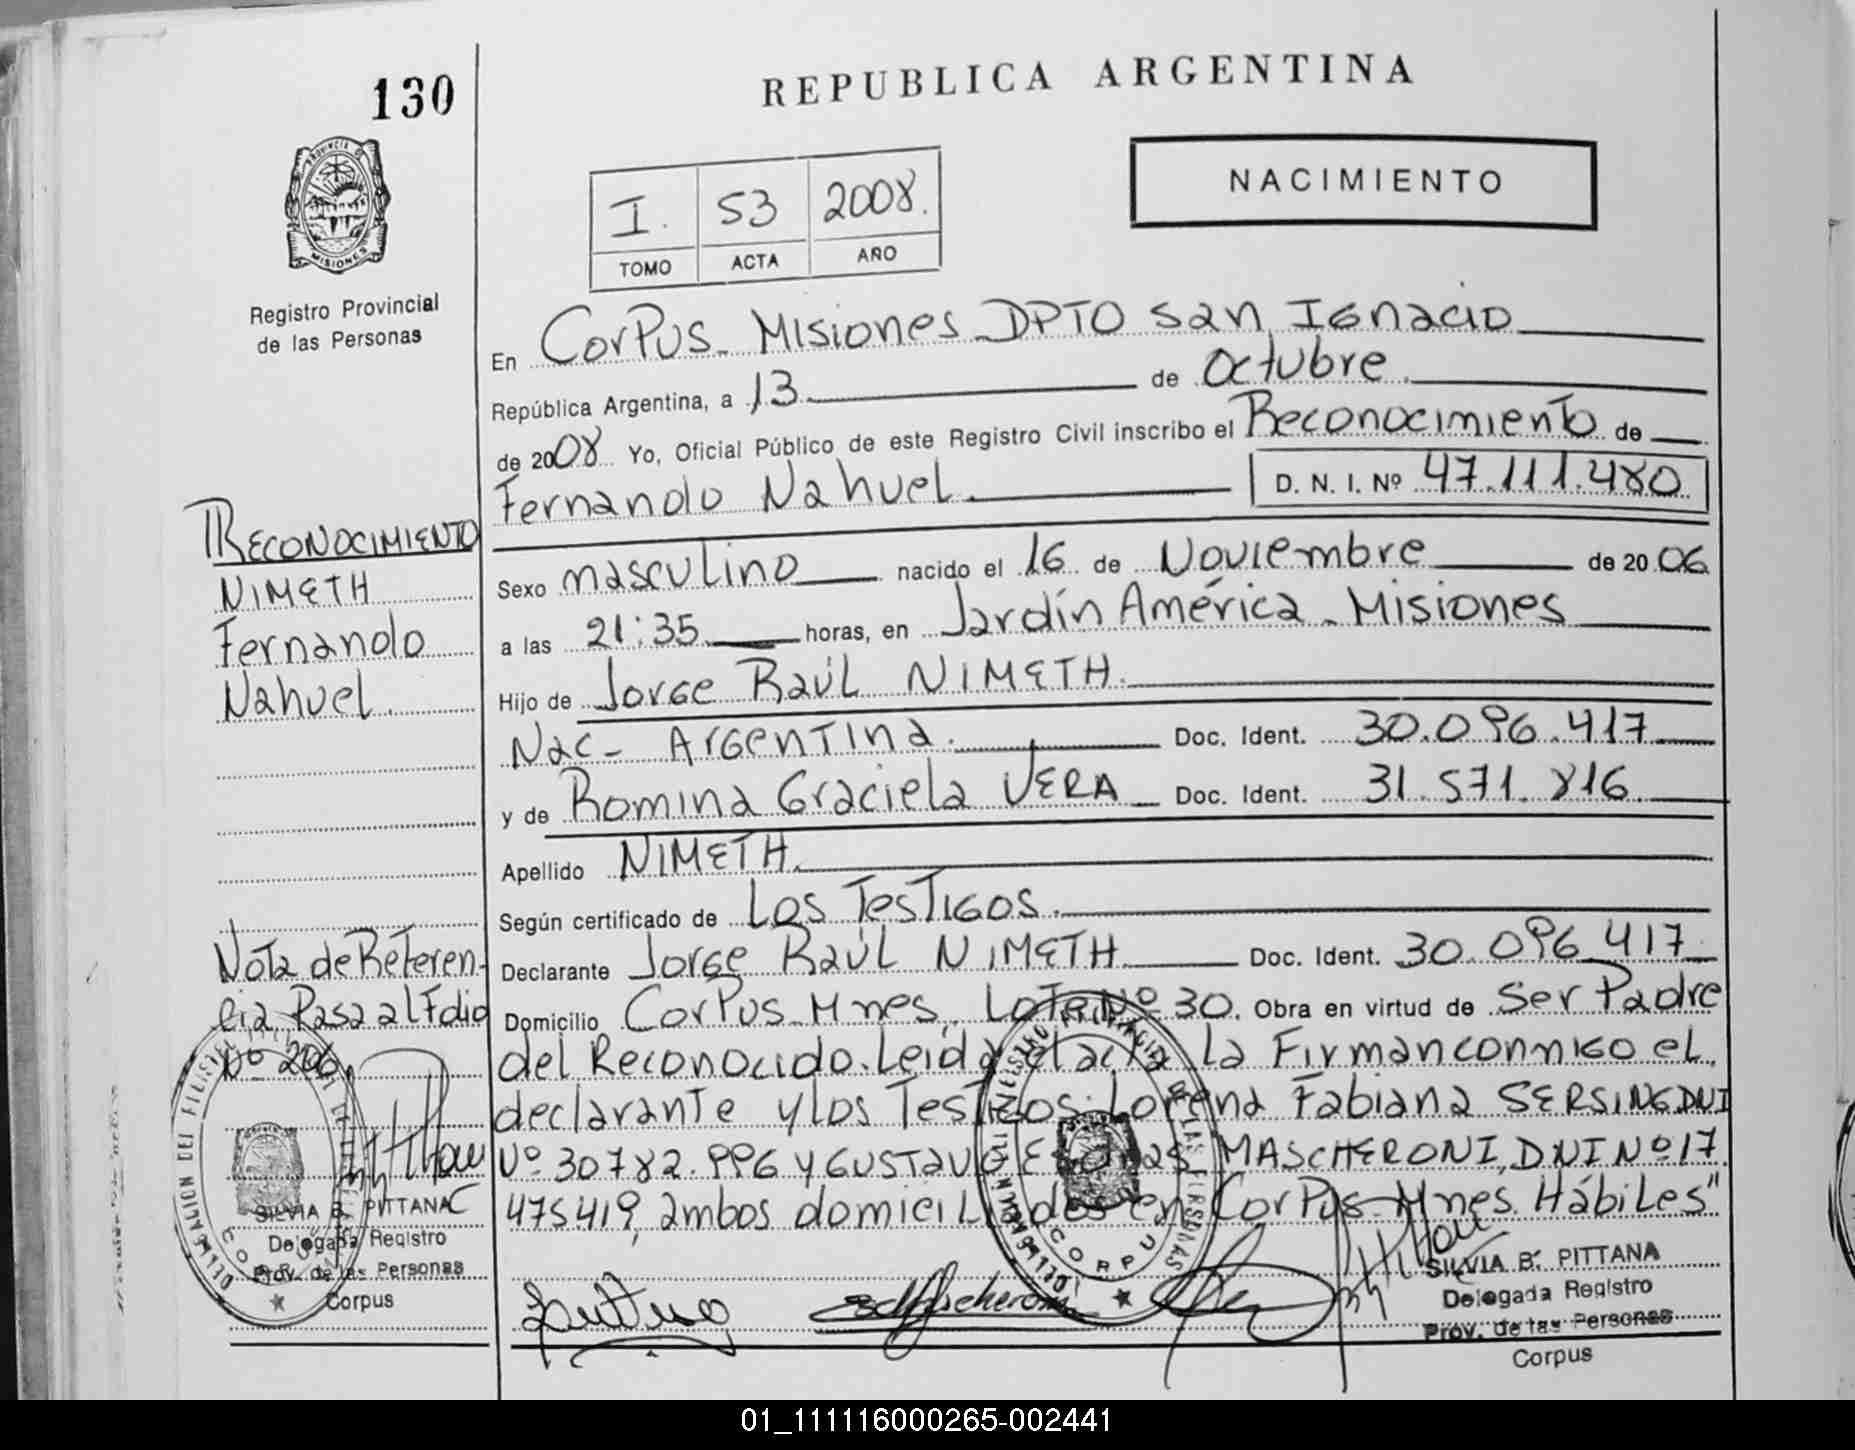 130
REPUBLICA ARGENTINA
PROVINCIA D
MISIONES
Registro Provincial
de las Personas
I. 53 2008.
TOMO ACTA AÑO
NACIMIENTO
En Corpus - Misiones DPTO San Ignacio
República Argentina, a 13 de Octubre
de 2008 Yo, Oficial Público de este Registro Civil inscribo el Reconocimiento de
Fernando Nahuel. D. N. I. Nº 47.111.480
Sexo masculino nacido el 16 de Noviembre de 2006
a las 21:35 horas, en Jardín América - Misiones
Hijo de Jorge Raúl NIMETH.
Nac - Argentina. Doc. Ident. 30.096.417
y de Romina Graciela VERA Doc. Ident. 31.571.816
Apellido NIMETH.
Según certificado de Los Testigos.
Declarante Jorge Raúl NIMETH Doc. Ident. 30.096.417
Domicilio Corpus - Mnes, Lote Nº 30. Obra en virtud de Ser Padre
del Reconocido. Leída el acta la Firman conmigo el
declarante y los Testigos: Lorena Fabiana SERSING DNI
Nº 30782.996 y GUSTAVO MASCHERONI, DNI Nº 17
475419, ambos domiciliados en Corpus - Mnes. Hábiles"
RECONOCIMIENTO
NIMETH
Fernando
Nahuel.
Nota de Referen-
cia Pasa al Folio
Nº 206
SILVIA B. PITTANA
Delegada Registro
Prov. de las Personas
Corpus
SILVIA B. PITTANA
Delegada Registro
Prov. de las Personas
Corpus
01_111116000265-002441